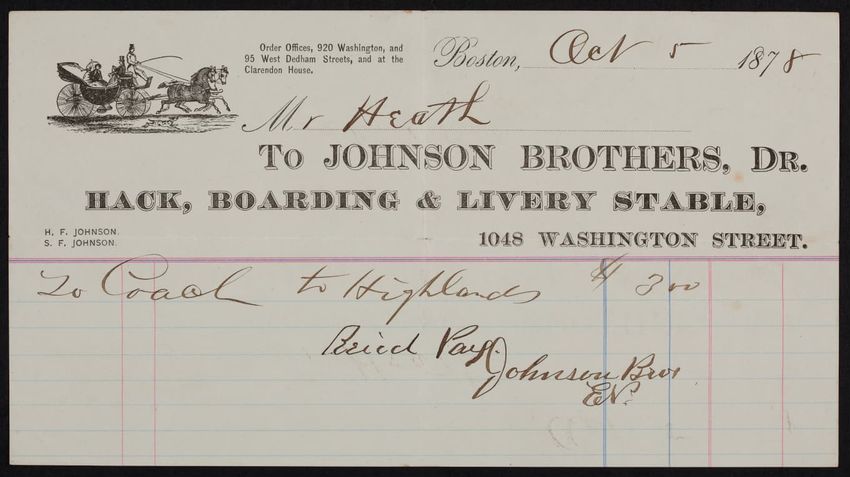 Order Offices, 920 Washington, and
95 West Dedham Streets, and at the
Clarendon House.
Boston, Oct 5 1878
Mr Heath
To JOHNSON BROTHERS, DR.
HACK, BOARDING & LIVERY STABLE,
H. F. JOHNSON.
S. F. JOHNSON.
1048 WASHINGTON STREET.
To Coach to Highlands $ 3 00
Rcicd Pay.
Johnson Bros